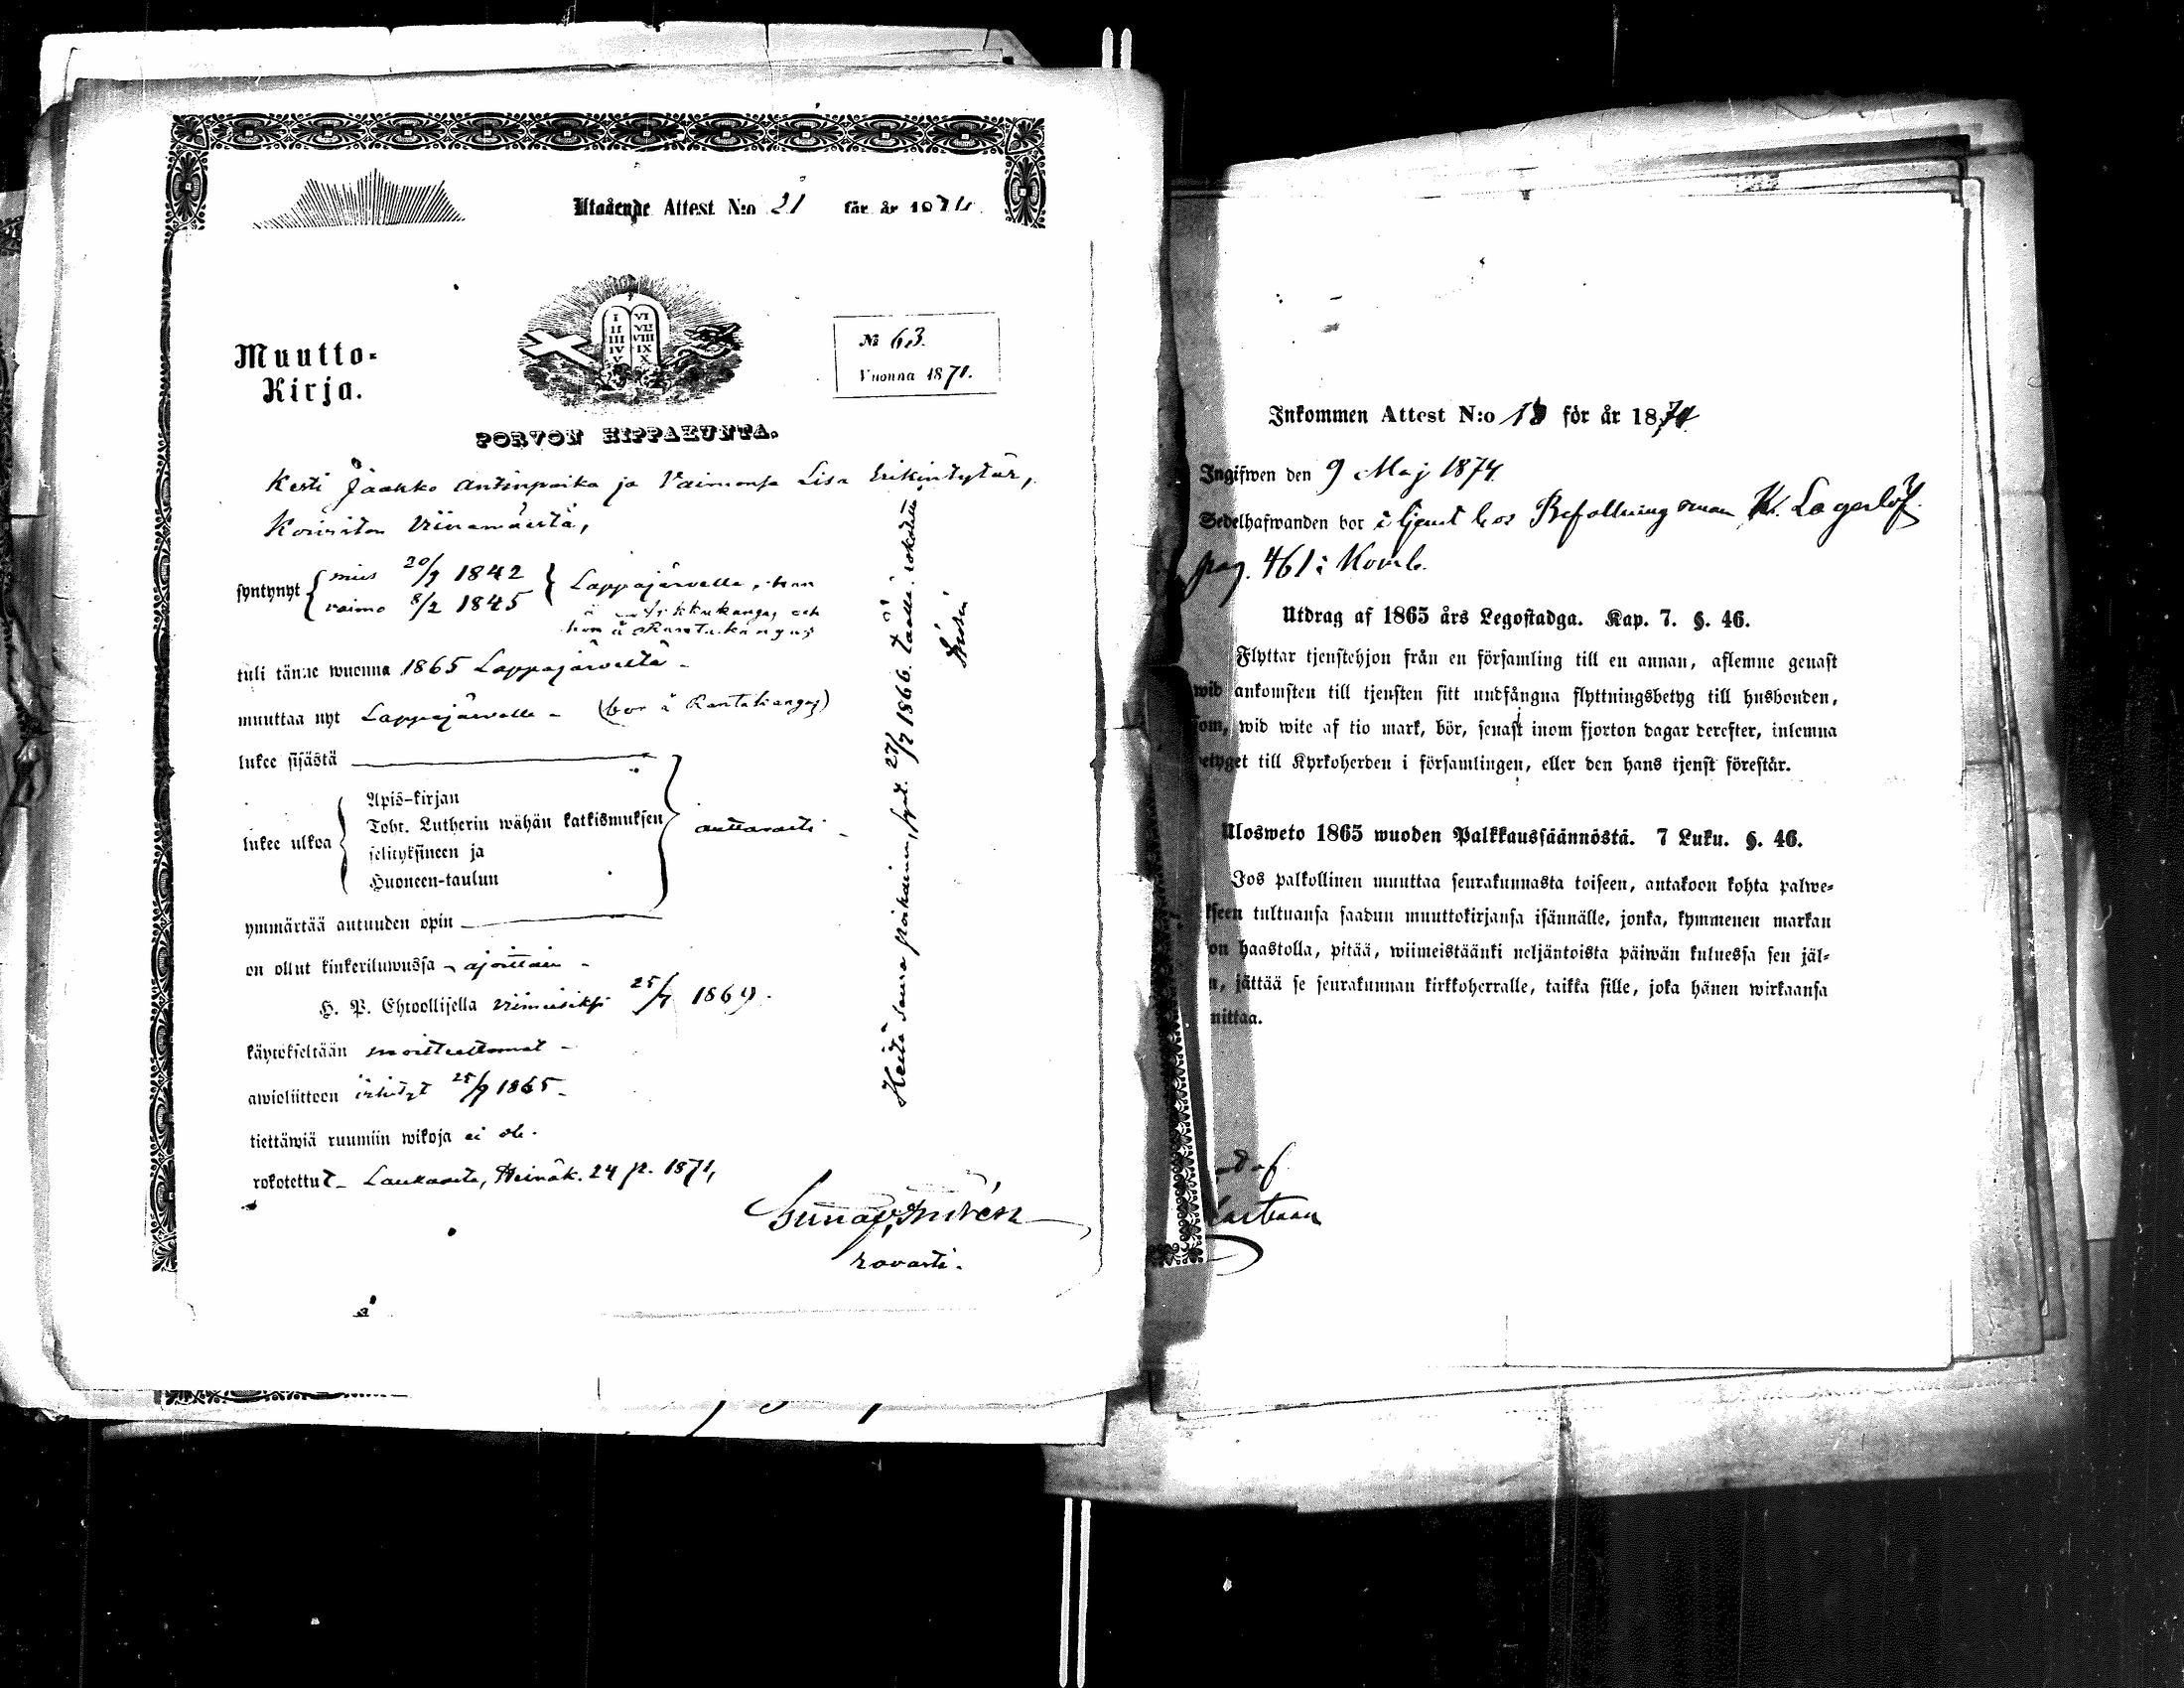 Utgående Attest N:o 21 för år 187
Muutto-
Kirja.
I II III IV V VI VII VIII IX X
№ 63.
Vuonna 1871.
PORVON HIPPAKUNTA.
Kesti Jaakko Antinpoika ja Vaimonsa Lisa Erikintytär,
Koiviston Viinamäestä,
syntynyt { mies 20/9 1842 } Lappajärvella, han
vaimo 8/2 1845
hon å Rantakangas
tuli tänne wuonna 1865 Lappajärveltä -
muuttaa nyt Lappajärvelle - (bor å Rantakangas)
lukee sisästä
lukee ulkoa
Apis-kirjan
Toht. Lutherin wähän katkismuksen
selityksineen ja
Huoneen-taulun
auttavasti -
ymmärtää autuuden opin
on ollut kinkeriluwussa - ajoittain -
H. P. Ehtoollisella viimeiseksi 25/7 1869.
käytökseltään moitteettomat -
awioliittoon vihityt 25/9 1865 -
tiettäwiä ruumiin wikoja ei ole.
rokotettut - Laukaasta, Heinäk. 24 p. 1871,
rovasti.
Heitä seuraa poikainen, synt. 27/7 1866. täällä. rokotettu
Inkommen Attest N:o 13 för år 1874
Ingifwen den 9 Maj 1874
Sedelhafwanden bor i tjenst hos Befallningsman K. Lagerlöf.
pag. 461 i Komb.
Utdrag af 1865 års Legostadga. Kap. 7. §. 46.
Flyttar tjenstehjon från en församling till en annan, aflemne genast
wid ankomsten till tjensten sitt undfångna flyttningsbetyg till husbonden,
som, wid wite af tio mark, bör, senast inom fjorton dagar derefter, inlemna
etyget till Kyrkoherden i församlingen, eller den hans tjenst förestår.
Ulosweto 1865 wuoden Palkkaussäännöstä. 7 Luku. §. 46.
Jos palkollinen muuttaa seurakunnasta toiseen, antakoon kohta palwe-
kseen tultuansa saadun muuttokirjansa isännälle, jonka, kymmenen markan
on haastolla, pitää, wiimeistäänki neljäntoista päiwän kuluessa sen jäl-
n, jättää se seurakunnan kirkkoherralle, taikka sille, joka hänen wirkaansa
mittaa.